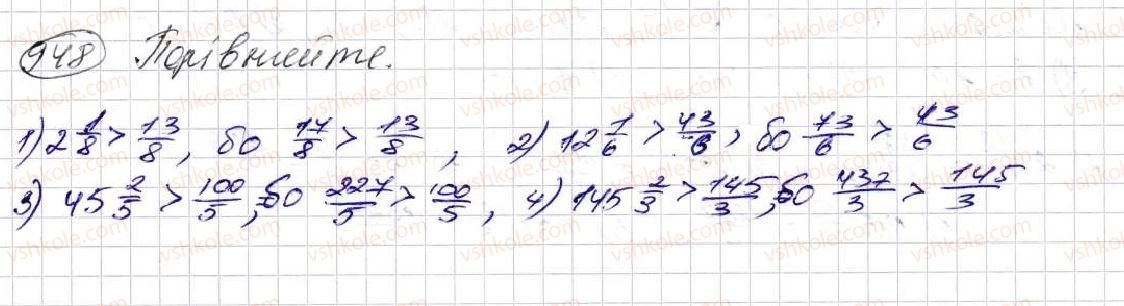 948 Порівняйте.
1) 2 1/8 > 13/8, бо 17/8 > 13/8, 2) 12 1/6 > 43/6, бо 73/6 > 43/6
3) 45 2/5 > 100/5, бо 227/5 > 100/5, 4) 145 2/3 > 145/3, бо 437/3 > 145/3